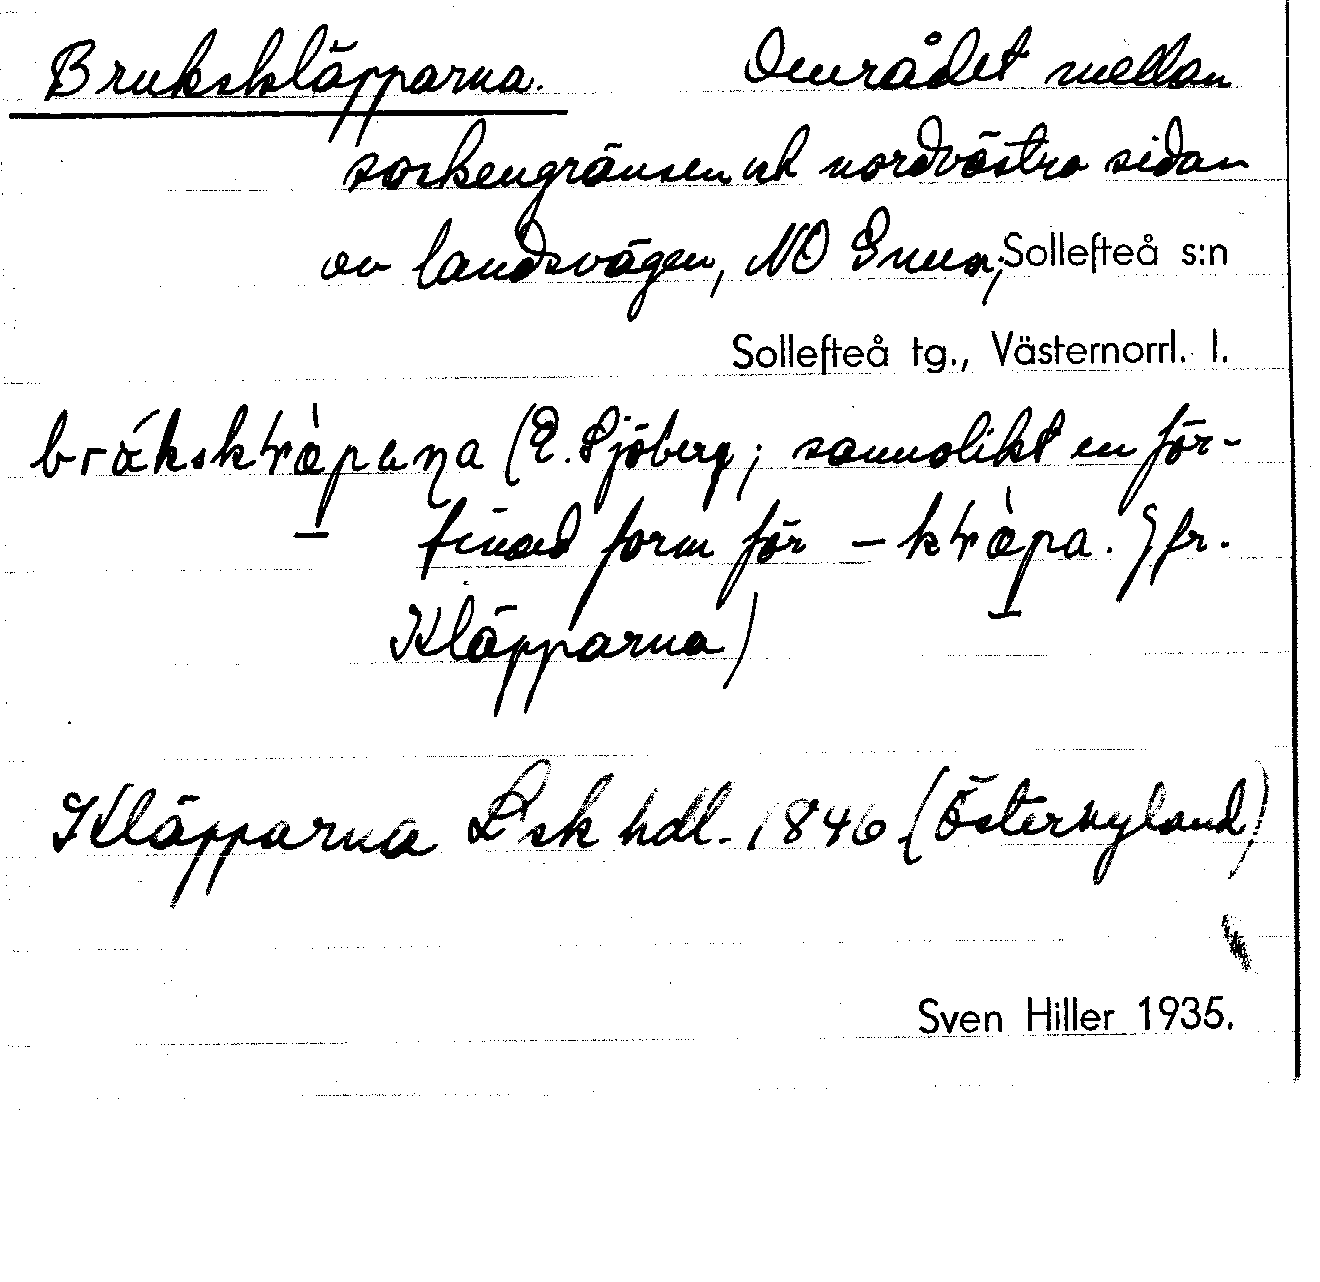 Bruksläpparna. Området mellan
sockengränsen och nordvästra sidan
av landsvägen, NO Grura, Sollefteå s:n
Sollefteå tg., Västernorrl. l.
(E. Sjöberg; sannolikt en för-
finad form för –
Jfr.
Kläpparna)
Kläpparna Lsk hdl. 1846 (Östernyland)
Sven Hiller 1935.